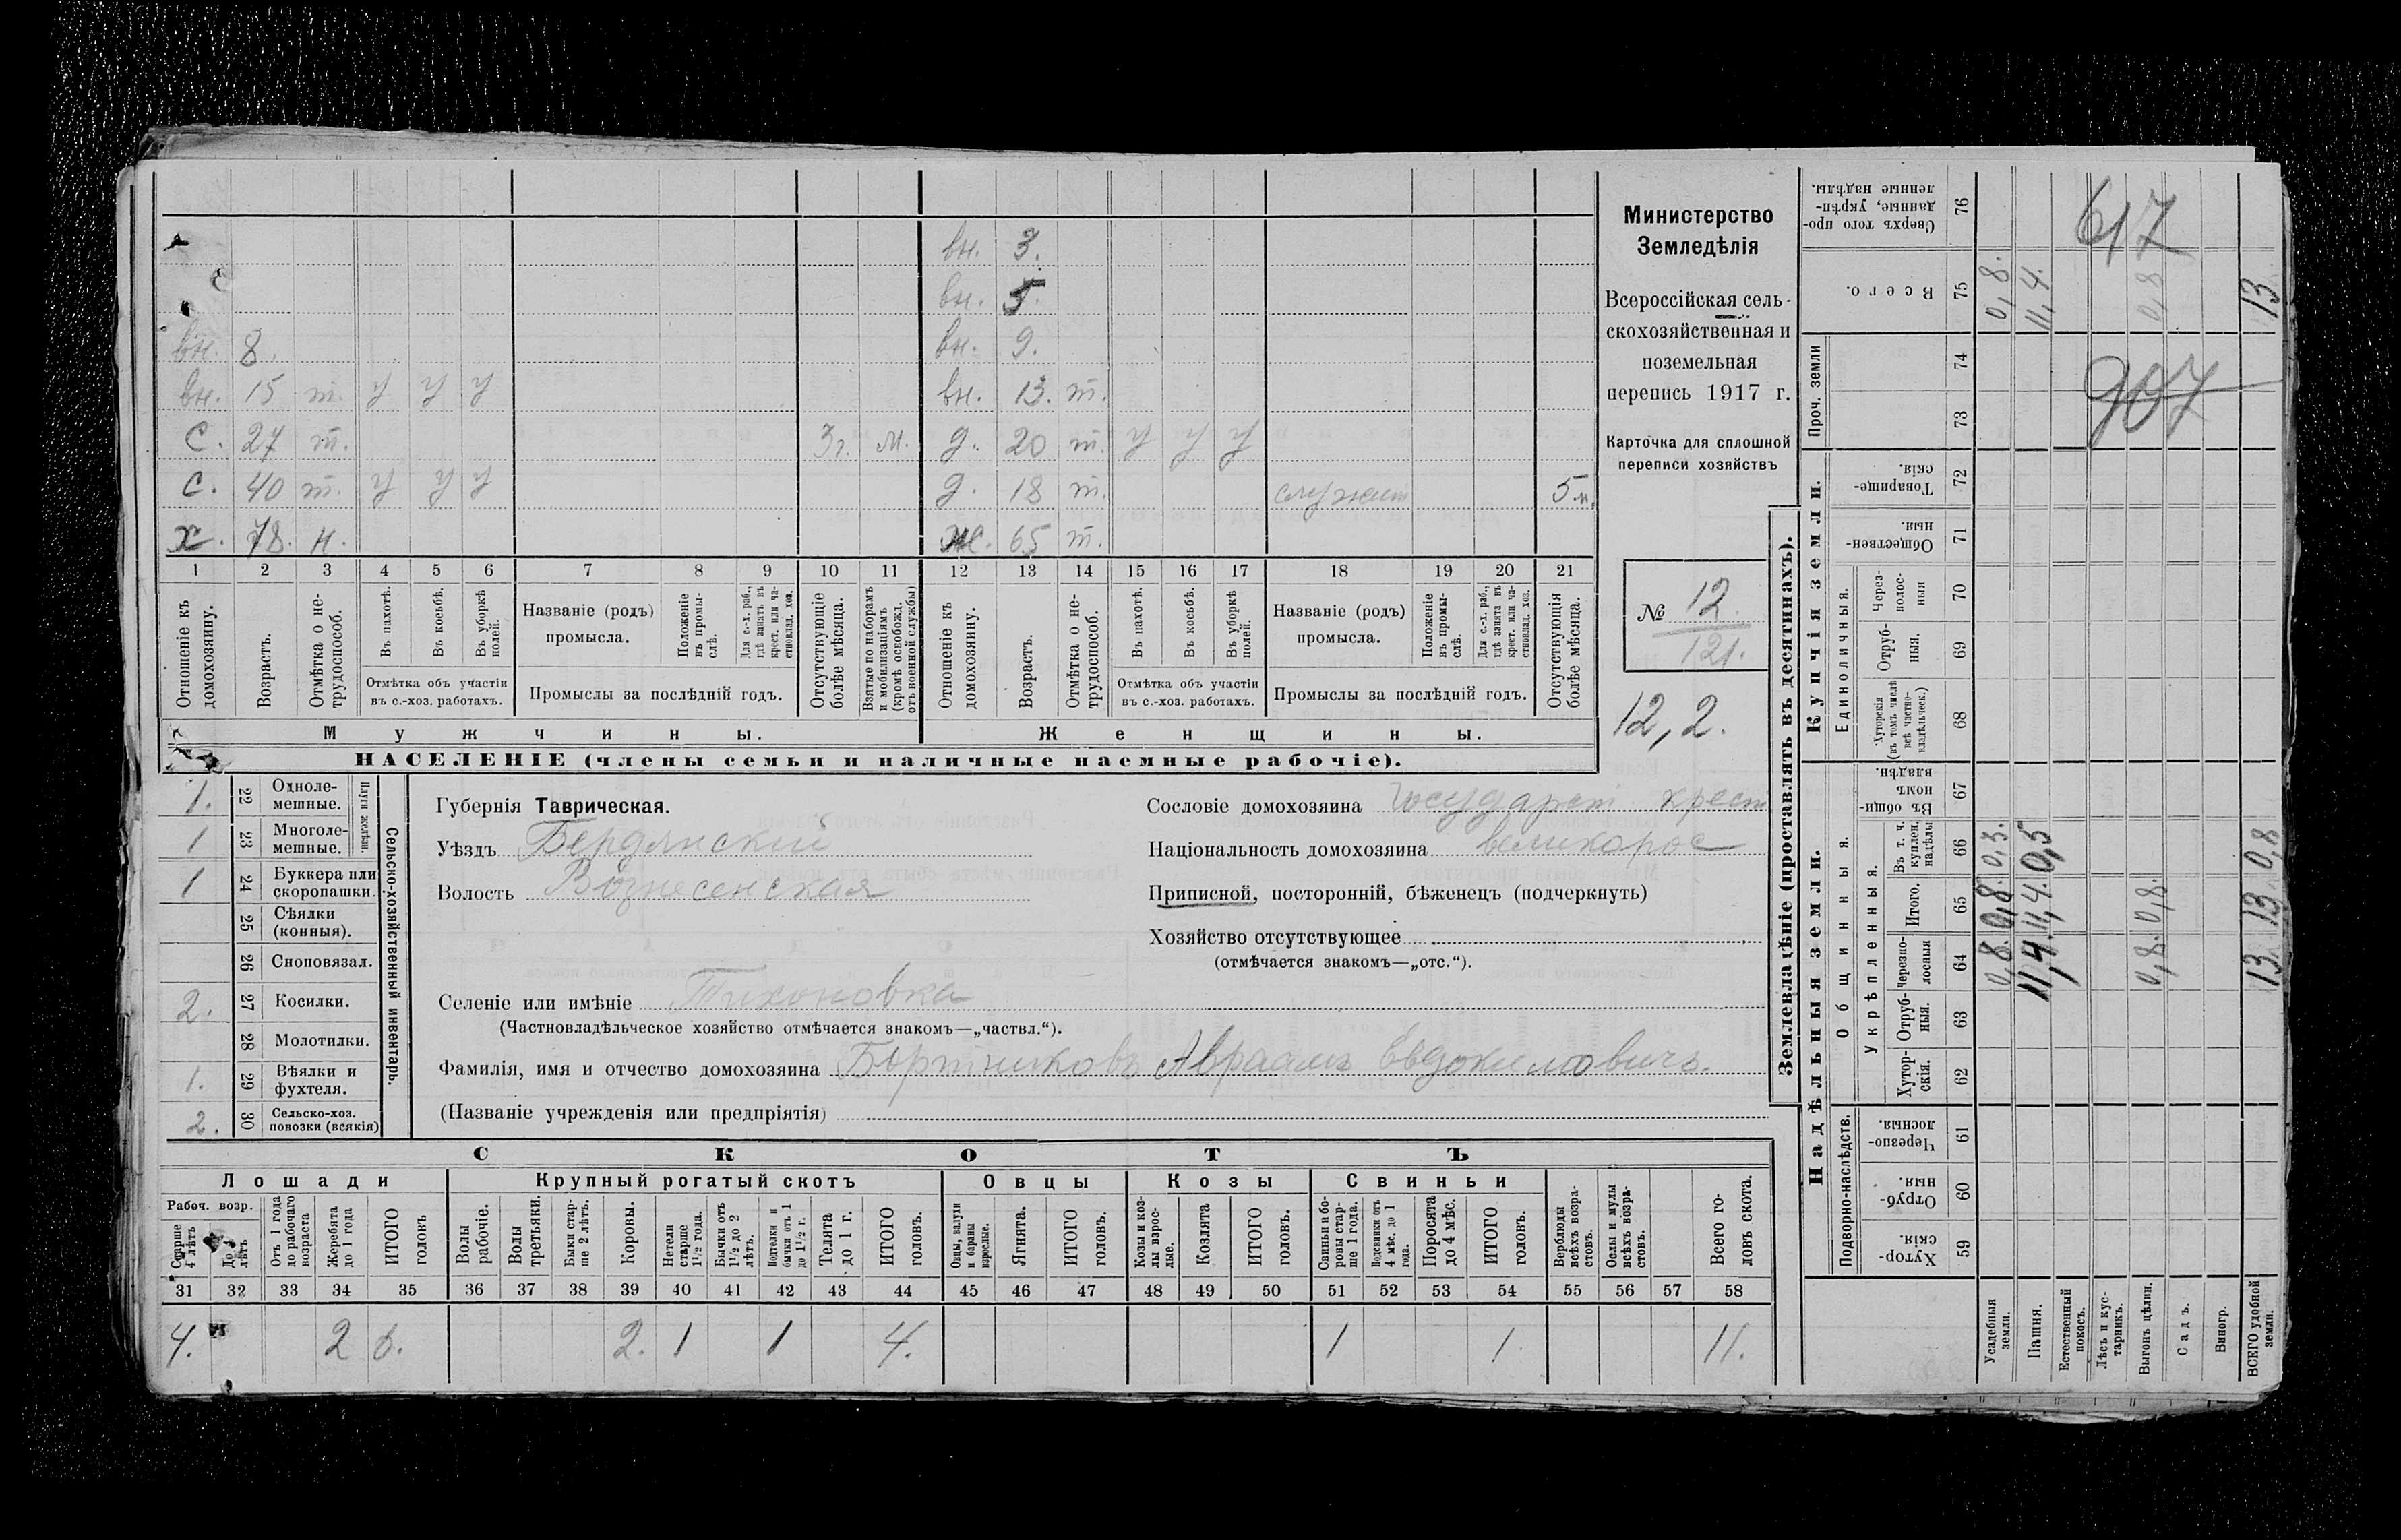 вн. 3.
вн. 5.
вн. 8. вн. 9.
вн. 15 т. у у у вн. 13. т.
с. 27 т. 3г. м. д. 20 т. у у у
с. 40 т. у у у д. 18 т. служит 5 м.
х. 78. н. ж. 65 т.
1 2 3 4 5 6 7 8 9 10 11 12 13 14 15 16 17 18 19 20 21
Отношеніе къ домохозяину.
Возрастъ.
Отмѣтка о не-
трудоспособ.
Въ пахотѣ.
Въ косьбѣ.
Въ уборкѣ
полей.
Отмѣтка объ участіи
въ с.-хоз. работахъ.
Названіе (родъ)
промысла.
Положеніе
въ промы-
слѣ.
Для с.-х. раб.,
гдѣ занятъ въ
крест. или ча-
стновлад. хоз.
Промыслы за послѣдній годъ.
Отсутствующіе
болѣе мѣсяца.
Взятые по наборамъ
и мобилизаціямъ
(кромѣ освобожд.
отъ военной службы)
Отношеніе къ
домохозяину.
Возрастъ.
Отмѣтка о не-
трудоспособ.
Въ пахотѣ.
Въ косьбѣ.
Въ уборкѣ
полей.
Отмѣтка объ участіи
въ с.-хоз. работахъ.
Названіе (родъ)
промысла.
Положеніе
въ промы-
слѣ.
Для с.-х. раб.,
гдѣ занята въ
крест. или ча-
стновлад. хоз.
Промыслы за послѣдній годъ.
Отсутствующія
болѣе мѣсяца.
Мужчины. Женщины.
НАСЕЛЕНІЕ (члены семьи и наличные наемные рабочіе).
Министерство
Земледѣлія
Всероссійская сель-
скохозяйственная и
поземельная
перепись 1917 г.
Карточка для сплошной
переписи хозяйствъ
№ 12.
121.
12,2.
1. 22 Однолемешные.
1 23 Многолемешные.
Плуги желѣзн.
1 24 Буккера или
скоропашки.
25 Сѣялки
(конныя).
26 Сноповязал.
2. 27 Косилки.
28 Молотилки.
1. 29 Вѣялки и
фухтеля.
2. 30 Сельско-хоз.
повозки (всякія)
Сельско-хозяйственный инвентарь.
Губернія Таврическая.
Уѣздъ Бердянский
Волость Вознесенская
Сословіе домохозяина государст крест
Національность домохозяина великорос
Приписной, посторонній, бѣженецъ (подчеркнуть)
Хозяйство отсутствующее
(отмѣчается знакомъ—„отс.“).
Селеніе или имѣніе Тихоновка
(Частновладѣльческое хозяйство отмѣчается знакомъ—„частвл.“).
Фамилія, имя и отчество домохозяина Бортниковъ Авраамъ Евдокимовичъ.
(Названіе учрежденія или предпріятія)
СКОТЪ
Лошади Крупный рогатый скотъ Овцы Козы Свиньи
Рабоч. возр.
Старше
4 лѣтъ
До 4
лѣтъ
Отъ 1 года
до рабочаго
возраста
Жеребята
до 1 года
ИТОГО
головъ
Волы
рабочіе.
Волы
третьяки.
Быки стар-
ше 2 лѣтъ.
Коровы.
Нетели
старше
1½ года.
Бычки отъ
1½ до 2
лѣтъ.
Подтелки и
бычки отъ 1
до 1½ г.
Телята
до 1 г.
ИТОГО
головъ.
Овцы, валухи
и бараны
взрослые.
Ягнята.
ИТОГО
головъ.
Козы и коз-
лы взрос-
лые.
Козлята
ИТОГО
головъ.
Свиньи и бо-
ровы стар-
ше 1 года.
Подсвинки отъ
4 мѣс. до 1
года.
Поросята
до 4 мѣс.
ИТОГО
головъ.
Верблюды
всѣхъ возра-
стовъ.
Ослы и мулы
всѣхъ возра-
стовъ.
Всего го-
ловъ скота.
31 32 33 34 35 36 37 38 39 40 41 42 43 44 45 46 47 48 49 50 51 52 53 54 55 56 57 58
4. 2 6. 2. 1 1 4. 1 1. 11.
Землевладѣніе (проставлять въ десятинахъ).
Надѣльныя земли. Купчія земли. Проч. земли
Подворно-наслѣдств.
Общинныя.
Укрѣпленныя.
Единоличныя.
Сверхъ того про-
данные, укрѣп-
ленные надѣлы. 76
617
Всего. 75 0,8. 11,4. 0,8 13.
74
73
907
Товарище-
скія. 72
Обществен-
ныя. 71
Через-
полос-
ныя 70
Отруб-
ныя. 69
Хуторскія
(въ томъ числѣ
всѣ частно-
владѣльческ.) 68
Въ общин-
номъ
владѣн. 67
Въ т. ч.
куплен.
надѣлы 66 0,3. 0,5 0,8
Итого. 65 0,8. 11,4. 0,8. 13
Черезпо-
лосныя 64 0,8. 11,4. 0,8. 13.
Отруб-
ныя. 63
Хутор-
скія. 62
Черезпо-
лосныя. 61
Отруб-
ныя. 60
Хутор-
скія. 59
Усадебныя
земли.
Пашня.
Естественный
покосъ.
Лѣсъ и кус-
тарникъ.
Выгонъ цѣлин.
Садъ.
Виногр.
ВСЕГО удобной
земли.